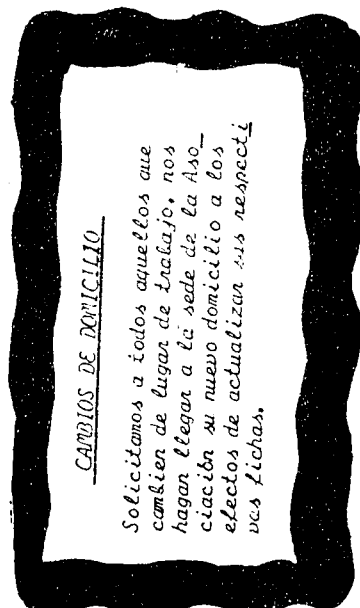 CAMBIOS DE DOMICILIO
Solicitamos a todos aquellos que
cambien de lugar de trabajo, nos
hagan llegar a la sede de la Aso_
ciación su nuevo domicilio a los
efectos de actualizar sus respecti
vas fichas.